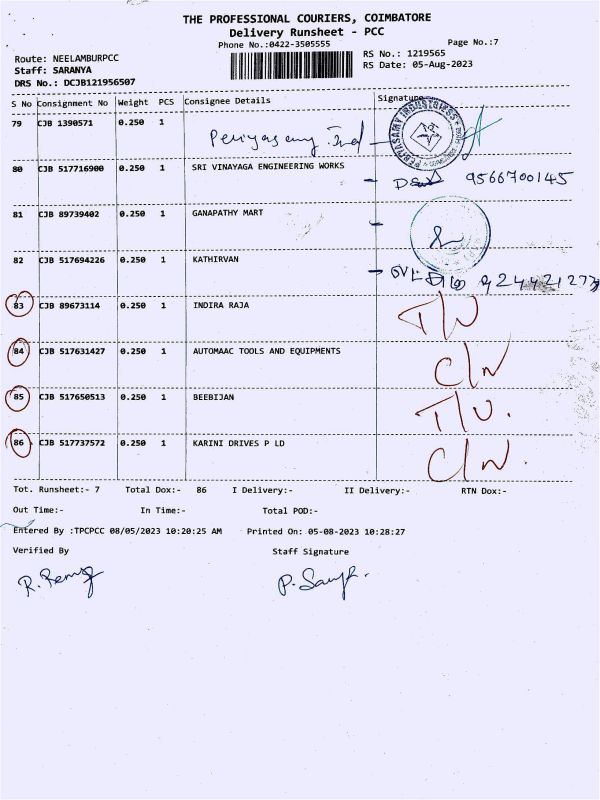 THE PROFESSIONAL COURIERS, COIMBATORE
Delivery Runsheet - PCC
Phone No.:0422-3505555
Page No.:7
Route: NEELAMBURPCC
RS No.: 1219565
Staff: SARANYA
RS Date: 05-Aug-2023
DRS No.: DCJB121956507
S No Consignment No Weight PCS Consignee Details Signature
79 CJB 1390571 0.250 1 Periyasamy Ind
PERIYASAMY INDUSTRIES
80 CJB 517716900 0.250 1 SRI VINAYAGA ENGINEERING WORKS
9566700145
81 CJB 89739402 0.250 1 GANAPATHY MART
82 CJB 517694226 0.250 1 KATHIRVAN
83 CJB 89673114 0.250 1 INDIRA RAJA
84 CJB 517631427 0.250 1 AUTOMAAC TOOLS AND EQUIPMENTS C/N
85 CJB 517650513 0.250 1 BEEBIJAN
86 CJB 517737572 0.250 1 KARINI DRIVES P LD C/N.
Tot. Runsheet:- 7 Total Dox:- 86 I Delivery:- II Delivery:- RTN Dox:-
Out Time:- In Time:- Total POD:-
Entered By :TPCPCC 08/05/2023 10:20:25 AM Printed On: 05-08-2023 10:28:27
Verified By Staff Signature